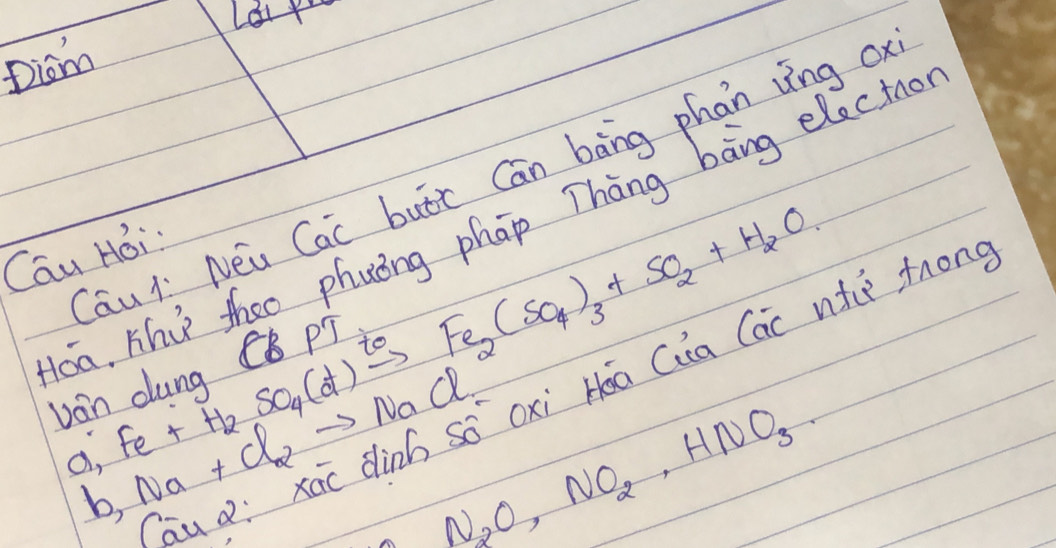 Điểm
Câu Hỏi:
Câu 1: Nêu Các bước Cân bằng phản ứng oxi
Hóa. Khử theo phương pháp Thăng bằng electron
vận dụng CB PT
a, Fe + H2 SO4(đ) to→ Fe2(SO4)3 + SO2 + H2O.
b, Na + Cl2 → Na Cl.
Câu 2: xác định số oxi Hóa Của Các ntử trong
N2O, NO2, HNO3.